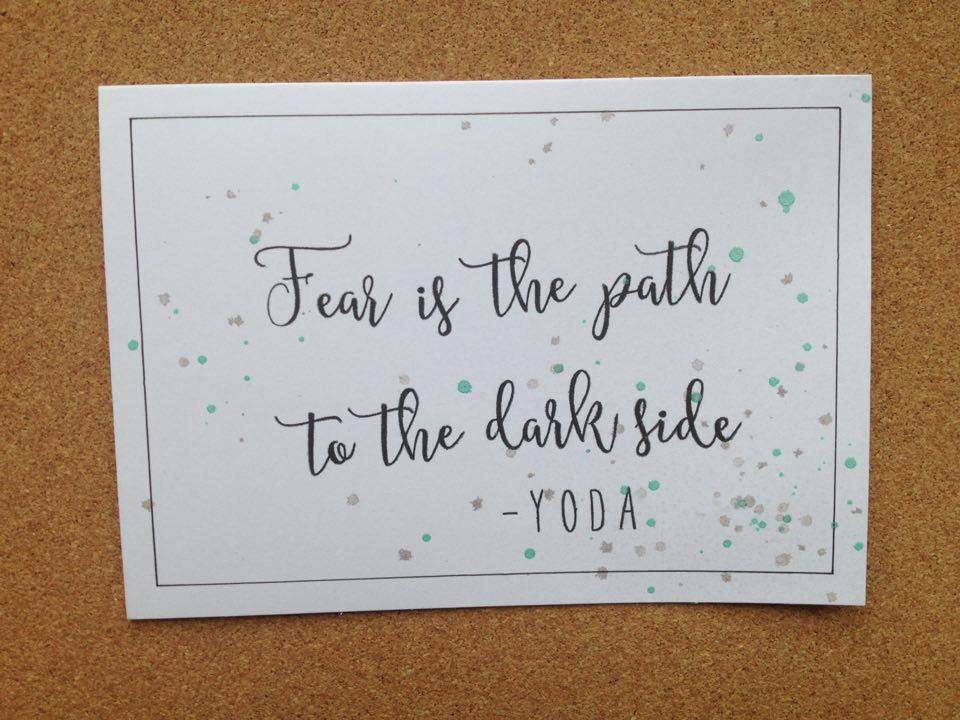 Fear is the path
to the dark side
-YODA